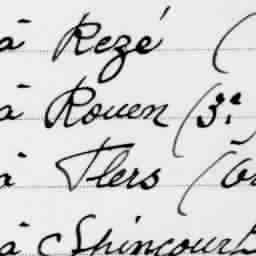 à Rezé (
à Rouen (3e
à Flers (
à